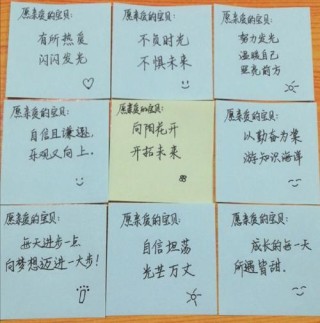 愿亲爱的宝贝:
有所热爱
闪闪发光
愿亲爱的宝贝:
不负时光
不惧未来
愿亲爱的宝贝:
努力发光
温暖自己
照亮前方
愿亲爱的宝贝:
自信且谦逊,
乐观又向上.
愿亲爱的宝贝:
向阳花开
开拓未来
愿亲爱的宝贝:
以勤奋为桨
游知识海洋
愿亲爱的宝贝:
每天进步一点
向梦想迈进一大步!
愿亲爱的宝贝:
自信坦荡
光芒万丈
愿亲爱的宝贝:
成长的每一天
所遇皆甜.